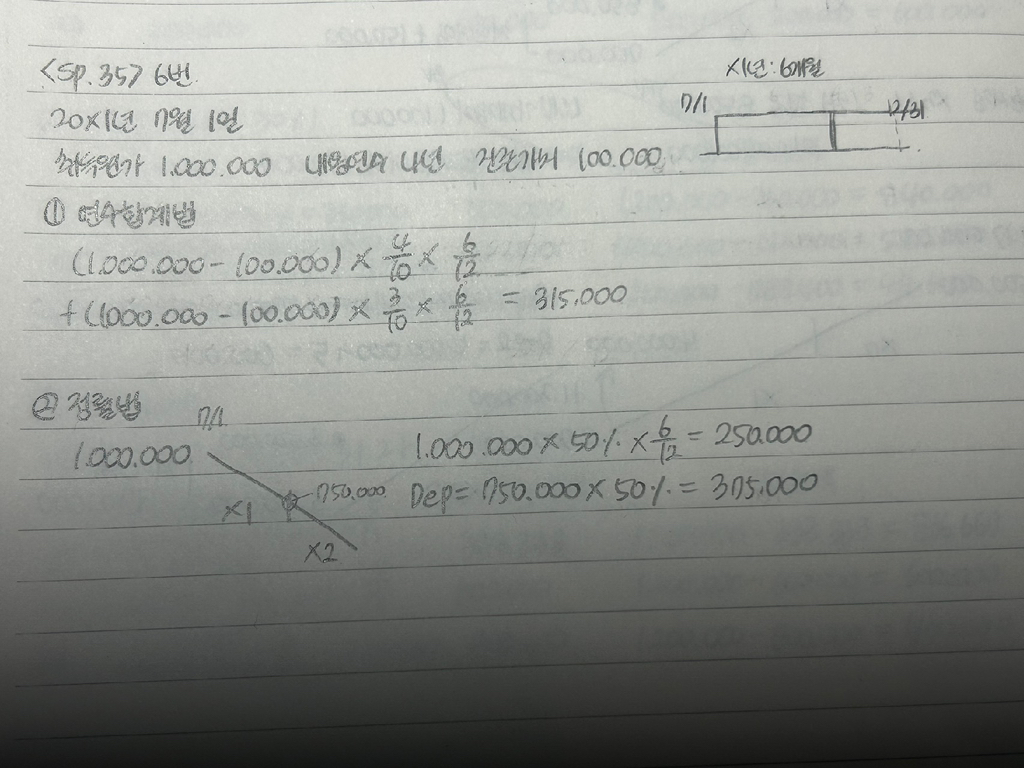 <sp.35> 6번
x1년: 6개월
7/1 12/31
20x1년 7월 1일
취득원가 1.000.000 내용연수 4년 잔존가치 100.000
① 연수합계법
(1.000.000 - 100.000) × 4/10 × 6/12
+ (1000.000 - 100.000) × 3/10 × 6/12 = 315.000
② 정률법
7/1
1.000.000 1.000.000 × 50% × 6/12 = 250.000
750.000 Dep = 750.000 × 50% = 375.000
x1
x2